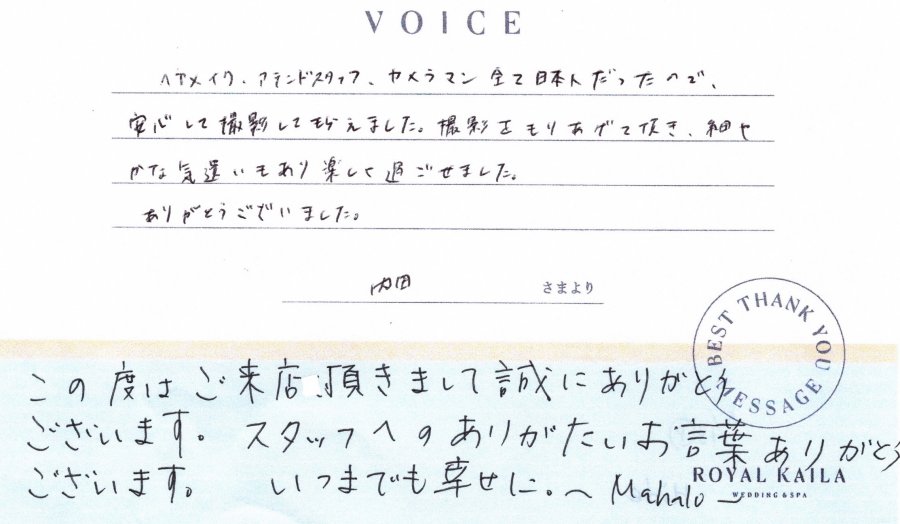 VOICE
ヘアメイク、アテンドスタッフ、カメラマン 全て日本人だったので、
安心して撮影してもらえました。撮影をもりあげて頂き、細や
かな気遣いもあり楽しく過ごせました。
ありがとうございました。
内田 さまより
BEST THANK YOU MESSAGE
この度はご来店頂きまして誠にありがとう
ございます。スタッフへのありがたいお言葉ありがとう
ございます。いつまでも幸せに。〜Mahalo〜
ROYAL KAILA
WEDDING & SPA